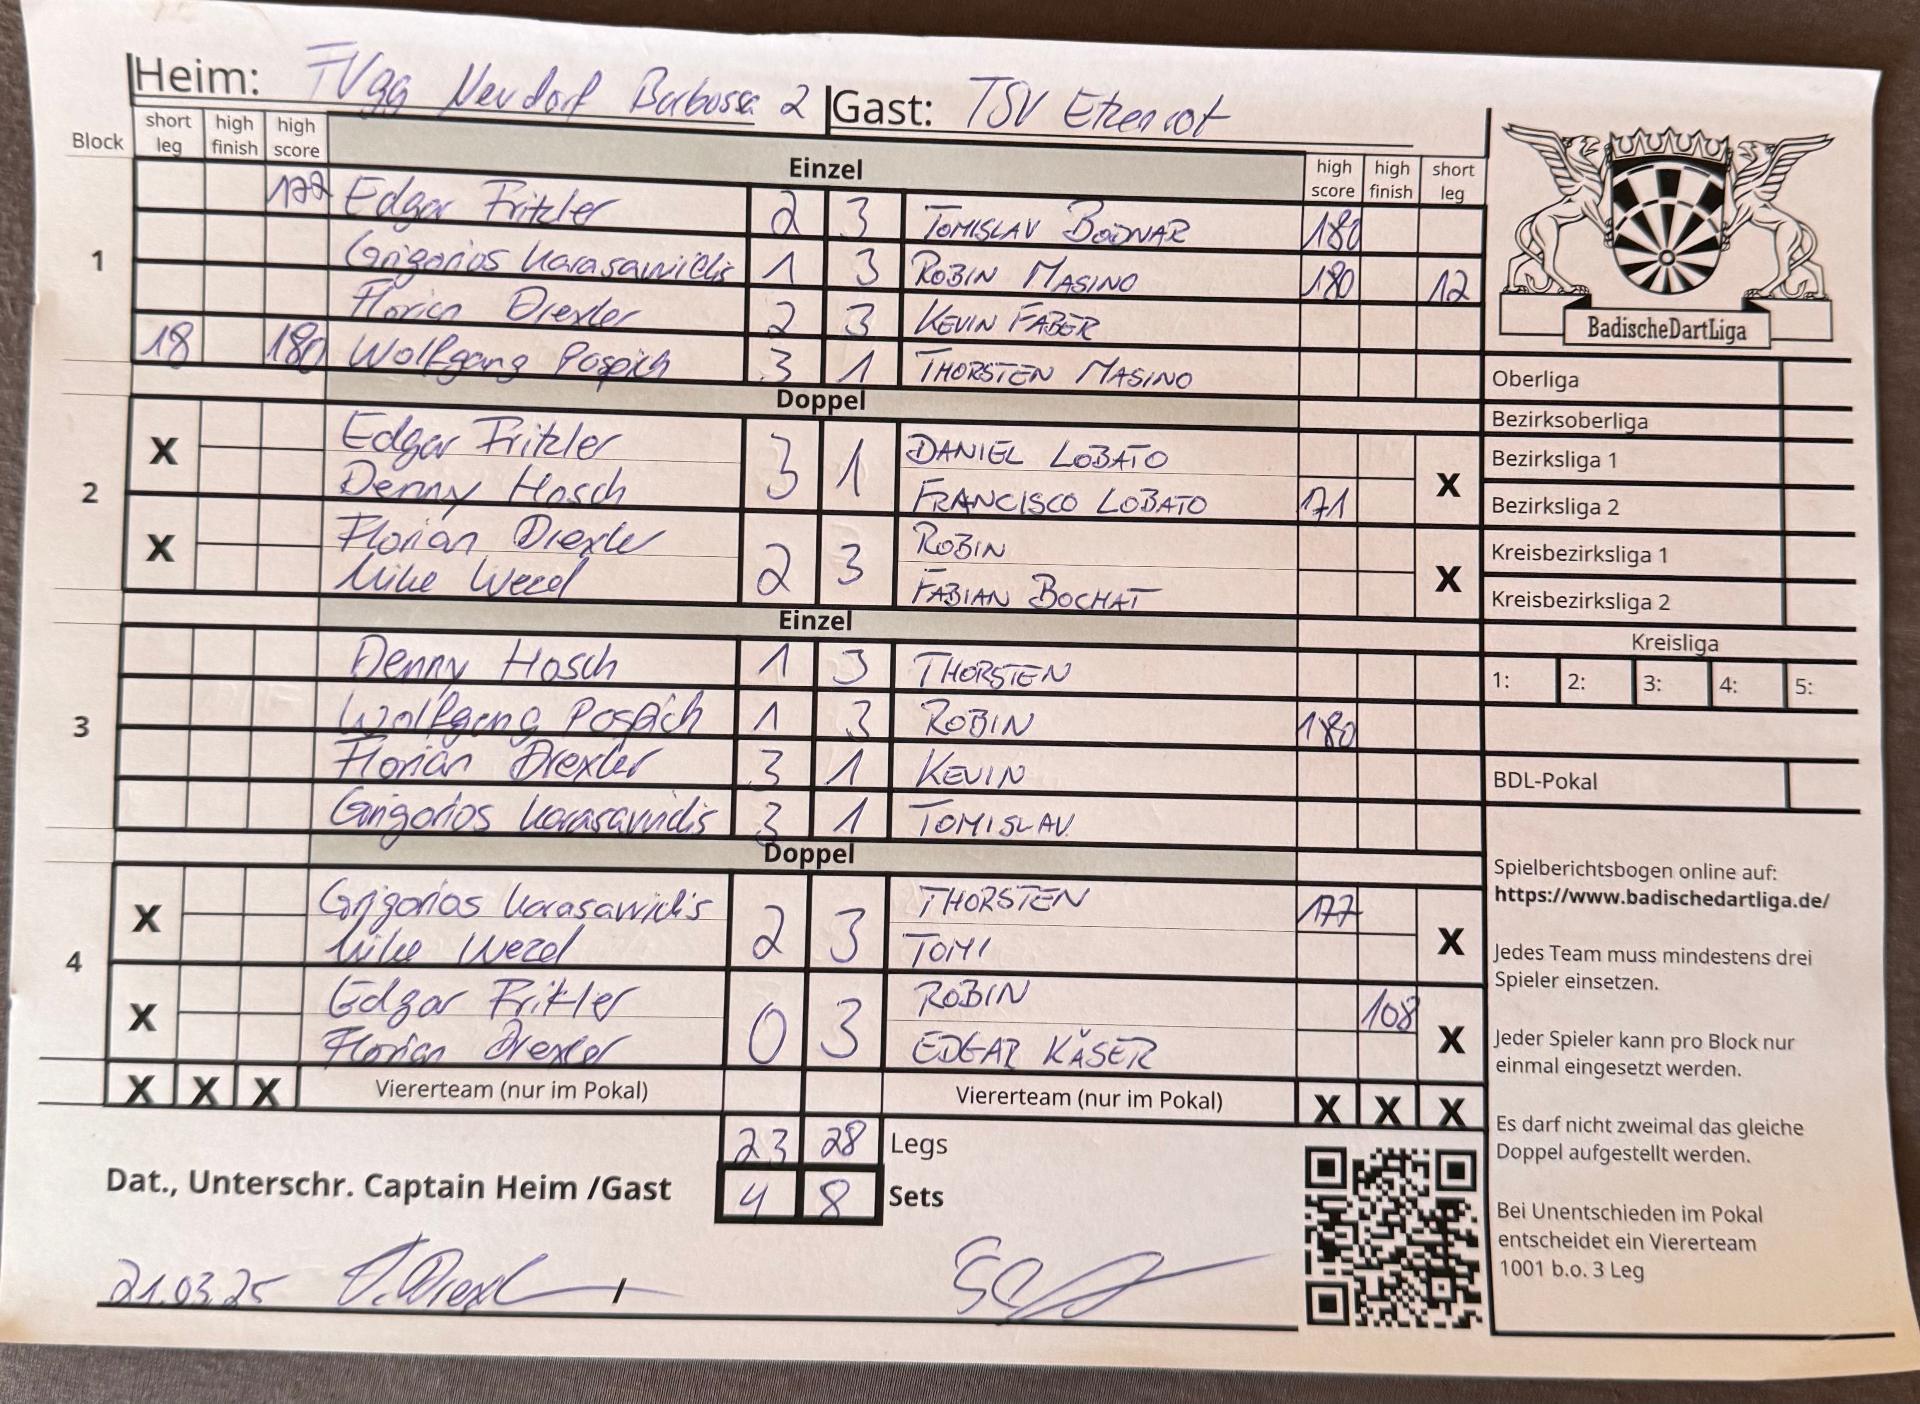 Heim: FVgg Neudorf Barbossa 2 Gast: TSV Etzenrot
Block short leg high finish high score Einzel high score high finish short leg
1
177 Edgar Fritzler 2 3 TOMISLAV BODNAR 180
Grigorios Karasawidis 1 3 ROBIN MASINO 180 12
Florian Drexler 2 3 KEVIN FABER
18 180 Wolfgang Pospich 3 1 THORSTEN MASINO
Doppel
2
X Edgar Fritzler 3 1 DANIEL LOBATO X
Denny Hosch FRANCISCO LOBATO 171
X Florian Drexler 2 3 ROBIN X
Mike Wezel FABIAN BOCHAT
Einzel
3
Denny Hosch 1 3 THORSTEN
Wolfgang Pospich 1 3 ROBIN 180
Florian Drexler 3 1 KEVIN
Grigorios Karasawidis 3 1 TOMISLAV
Doppel
4
X Grigorios Karasawidis 2 3 THORSTEN 177 X
Mike Wezel TOMI
X Edgar Fritzler 0 3 ROBIN 108 X
Florian Drexler EDGAR KÄSER
X X X Viererteam (nur im Pokal) Viererteam (nur im Pokal) X X X
23 28 Legs
Dat., Unterschr. Captain Heim /Gast 4 8 Sets
21.03.25 F. Drexl
BadischeDartLiga
Oberliga
Bezirksoberliga
Bezirksliga 1
Bezirksliga 2
Kreisbezirksliga 1
Kreisbezirksliga 2
Kreisliga
1: 2: 3: 4: 5:
BDL-Pokal
Spielberichtsbogen online auf:
https://www.badischedartliga.de/
Jedes Team muss mindestens drei
Spieler einsetzen.
Jeder Spieler kann pro Block nur
einmal eingesetzt werden.
Es darf nicht zweimal das gleiche
Doppel aufgestellt werden.
Bei Unentschieden im Pokal
entscheidet ein Viererteam
1001 b.o. 3 Leg